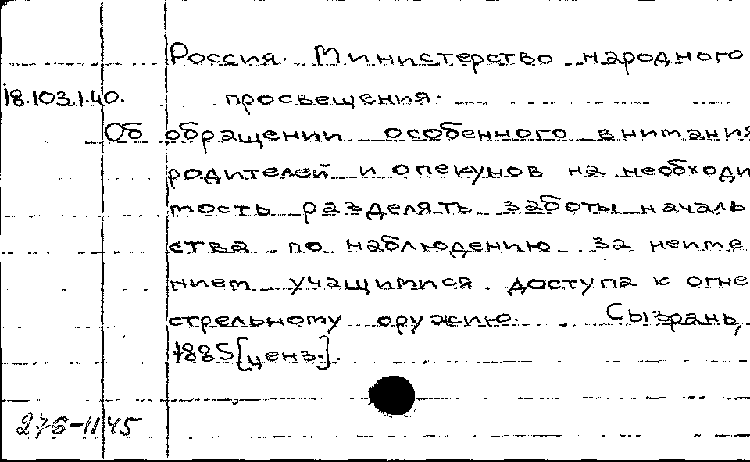 Россия. Министерство народного
18.103.1.40. просвещения.
Об обращении особенного внимания
родителей и опекунов на необходи
мость разделять заботы началь
ства по наблюдению за неиме
нием учащимися доступа к огне
стрельному оружию. Сызрань,
1885 [ценз.].
276-1145